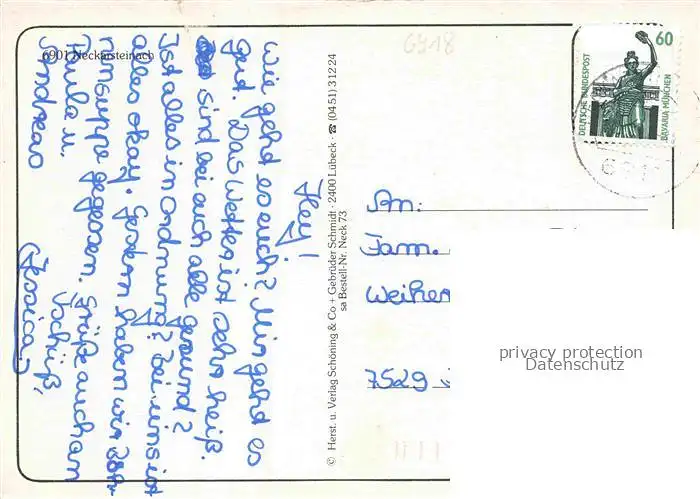 6901 Neckarsteinach
Hey!
Wie geht es euch? Mir geht es
gut. Das Wetter ist sehr heiß.
sind bei euch alle gesund?
Ist alles in Ordnung? bei uns ist
alles okay. Gestern haben wir
gegessen. Grüße auch an
Paula u.
Andreas
Tschüß,
Jessica
© Herst. u. Verlag Schöning & Co + Gebrüder Schmidt · 2400 Lübeck · ☎ (04 51) 3 12 24
sa Bestell-Nr. Neck 73
6918
60
DEUTSCHE BUNDESPOST
BAVARIA MÜNCHEN
An:
Fam.
7529
privacy protection
Datenschutz